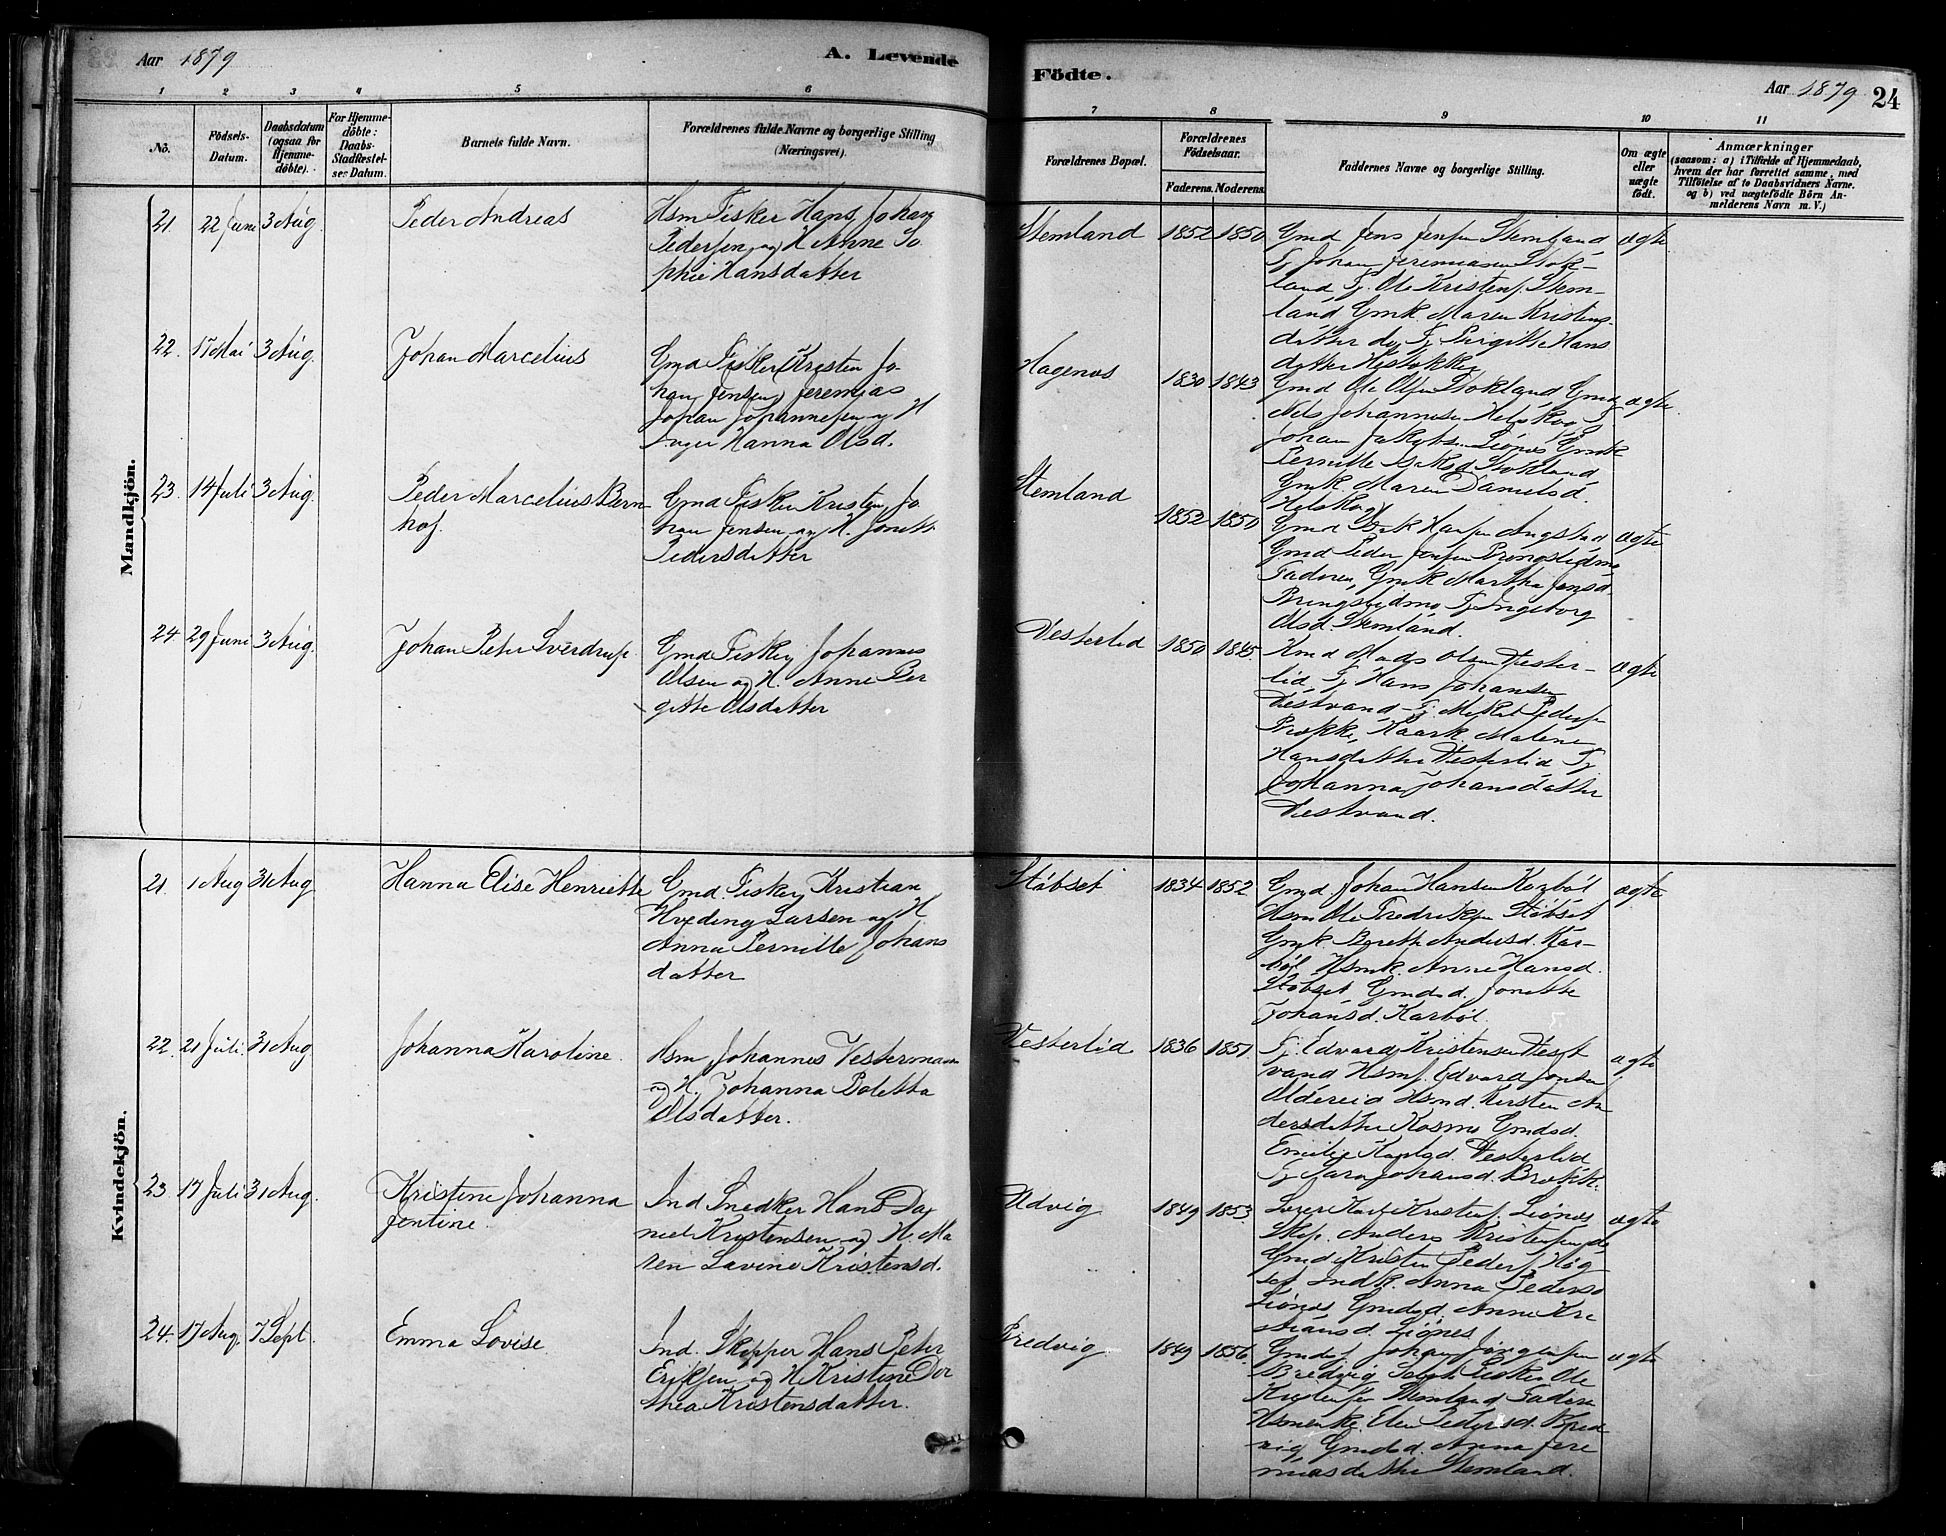 Aar 1879
A. Levende
Födte.
Aar 1879
24
1 2 3 4 5 6 7 8 9 10 11
No.
Födsels-Datum.
Daabsdatum (ogsaa for Hjemmedöbte).
For Hjemmedöbte: Daabs-Stadfæstelses Datum.
Barnets fulde Navn.
Forældrenes fulde Navne og borgerlige Stilling (Næringsvei).
Forældrenes Bopæl.
Forældrenes Födselsaar.
Faderens. Moderens.
Faddernes Navne og borgerlige Stilling.
Om ægte eller uægte födt.
Anmærkninger
(saasom: a) i Tilfælde af Hjemmedaab,
hvem der har forrettet samme, med
Tilföielse af to Daabsvidners Navne.
og b) ved uægtefödte Börn An-
melderens Navn m. V.)
Mandkjön.
21. 22 Juni 3 Aug Peder Andreas
Hsm Fisker Hans Johan
Pedersen og H Anne So
phie Hansdatter
Stemland 1852 1850
Gmd Jens Jensen Stemland
Tj Johan Jeremiasen Stok-
land Tj. Ole Kristens. Stem-
land Gmk. Maren Kristens-
datter do Tj Birgitte Hans
datter
ægte
22. 17 Mai 3 Aug. Johan Marcelius
Gmd Fisker (Kristen Jo-
han Jensen) Jeremias
Johan Johannesen og H
Inger Hanna Olsd.
Hagenes 1830 1843
Gmd Ole Olsen Stokland Gmd
Nels Johannesen Helskog
Johan Jakobsen Liönes Gmk
Pernille Stokland
Gmk. Maren Danielsd.
Helskog
ægte.
23. 14 Juli 3 Aug. Peder Marcelius Bern
hof.
Gmd Fisker Kristen Jo
han Jensen og H. Jonette
Pedersdatter
Stemland 1852 1850
Gmd Hansen
Gmd Peder Jensen Bringslidmo
Faderen, Gmk Martha Jensd.
Bringslidmo Tj Ingeborg
Olsd. Stemland.
ægte
24. 29 Juni 3 Aug. Johan Peter Sverdrup.
Gmd Fisker Johannes
Olsen og H. Anne Ber
gitte Olsdatter
Vesterlid 1850 1845.
Mads Olsen Vester-
lid Tj Hans Johansen
Vestvand Tj.
Brække, Malene
Hansdatter Vesterlid Tj
Johanna Johansdatter
Vestvand.
ægte
Kvindekjön.
21. 1 Aug 31 Aug Hanna Elise Henriette
Gmd. Fisker Kristian
Hveding Larsen og H
Anna Pernille Johans
datter
Stöbset 1834 1852
Gmd. Johan Hansen Karböl
Hsm Ole Fredriksen Stöbset
Gmk. Berethe Andersd. Kar-
böl Hsmk. Anne Hansd.
Stöbset Gmdsd. Jonette
Johansd. Karböl.
ægte
22. 21 Juli. 31 Aug Johanna Karoline.
Hsm Johannes Vestermann
og H. Johanna Boletta
Olsdatter.
Vesterlid 1836 1851
Tj. Edvard Kristensen Vest
vand Hsm. Edvard Jonsen
Oldereid Hsmd. Kirsten An
dersdatter Kosmo Gmdsd.
Emilie Vesterlid
Tj Sara Johansd. Brække.
ægte
23. 17 Juli 31 Aug. Kristine Johanna
Jentine.
Ind Snedker Hans Da
niel Kristensen og H. Ma
ren Lavine Kristensd.
Udvig 1849 1853
Lærer Karl Kristens. Liönes
Skp. Anders Kristensen do
Gmd Kristen Peders. Hög
set Indk. Anna Pedersd
Liönes Gmdsd Anne Kri
stians d. Liönes
ægte
24. 17 Aug. 7 Sept. Emma Lovise.
Ind. Skipper Hans Peter
Eriksen og H Kristine Dor
thea Kristensdatter.
Bredvig 1849 1856.
Gmds Johan Jörgensen
Bredvig Fisker Ole
Kristensen Stemland Faderen
Elen Pedersd. Bred
vig Gmdsd. Anna Jere
miasdatter Stemland.
ægte